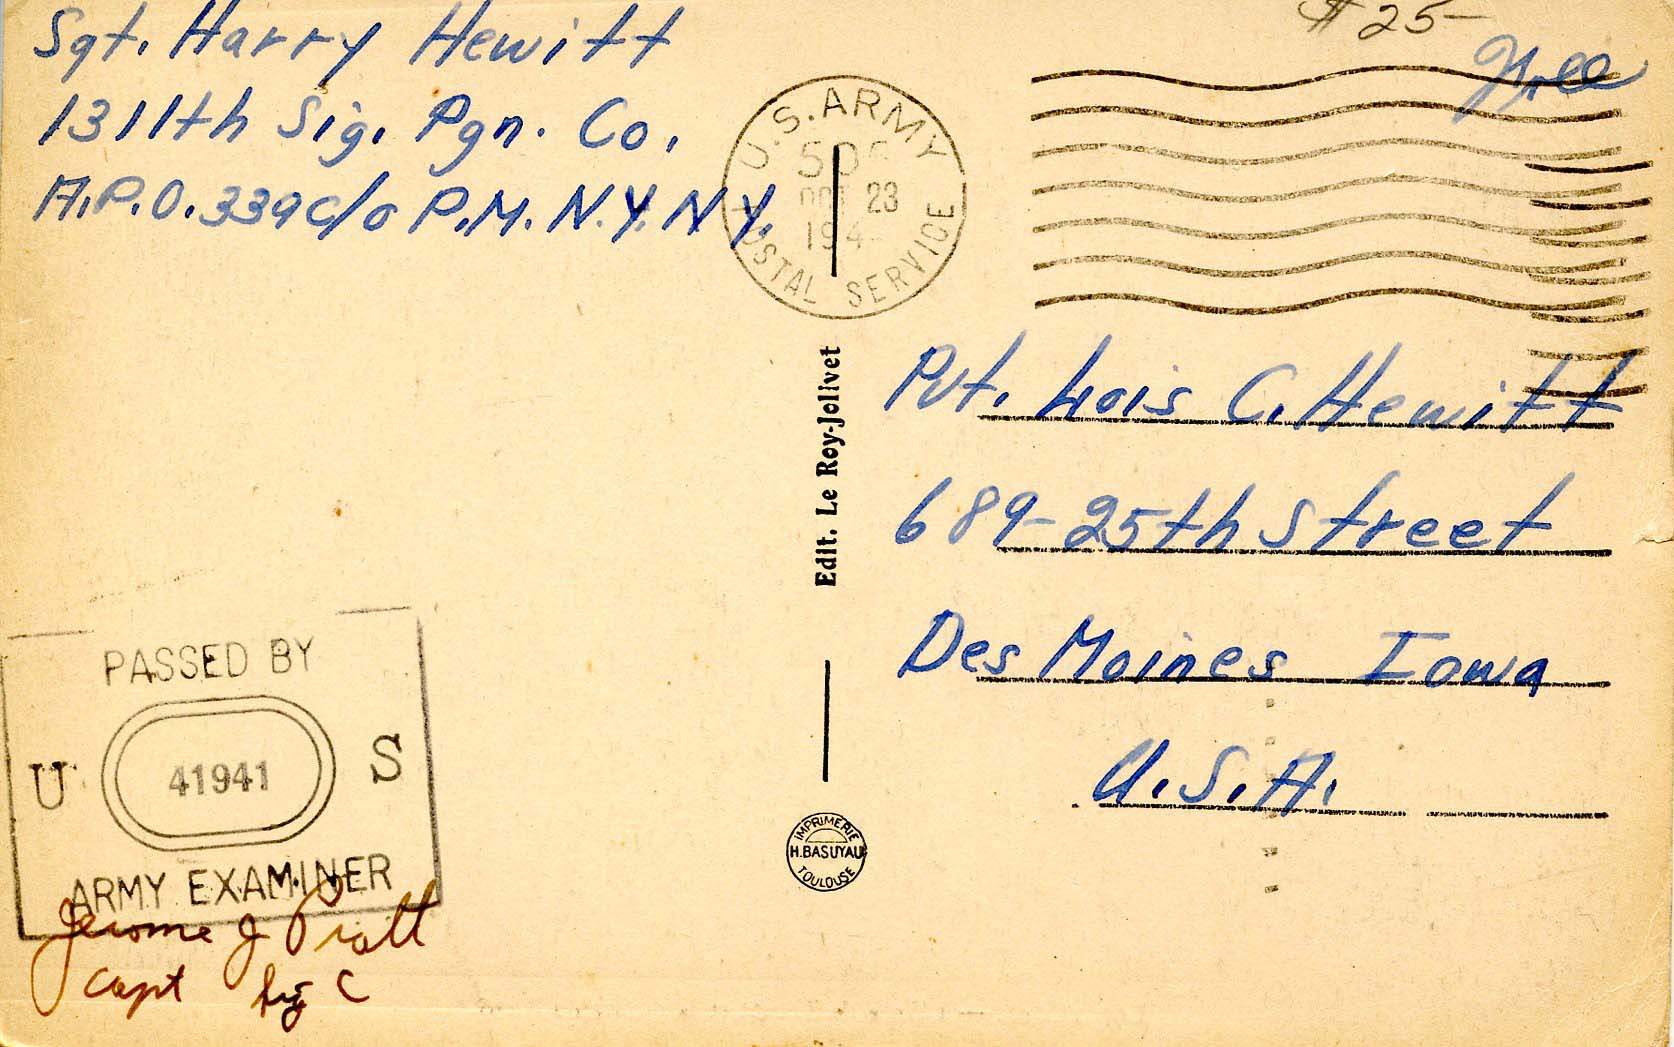 $25-
Free
Sgt. Harry Hewitt
1311th Sig. Pgn. Co.
A.P.O. 339 c/o P.M. N.Y. N.Y.
U.S. ARMY
23
194
POSTAL SERVICE
Edit. Le Roy-Jolivet
Pvt. Lois C. Hewitt
689-25th Street
Des Moines Iowa
U.S.A.
PASSED BY
U 41941 S
ARMY EXAMINER
Jerome J Pratt
Capt Sig C
IMPRIMERIE
H. BASUYAU
TOULOUSE